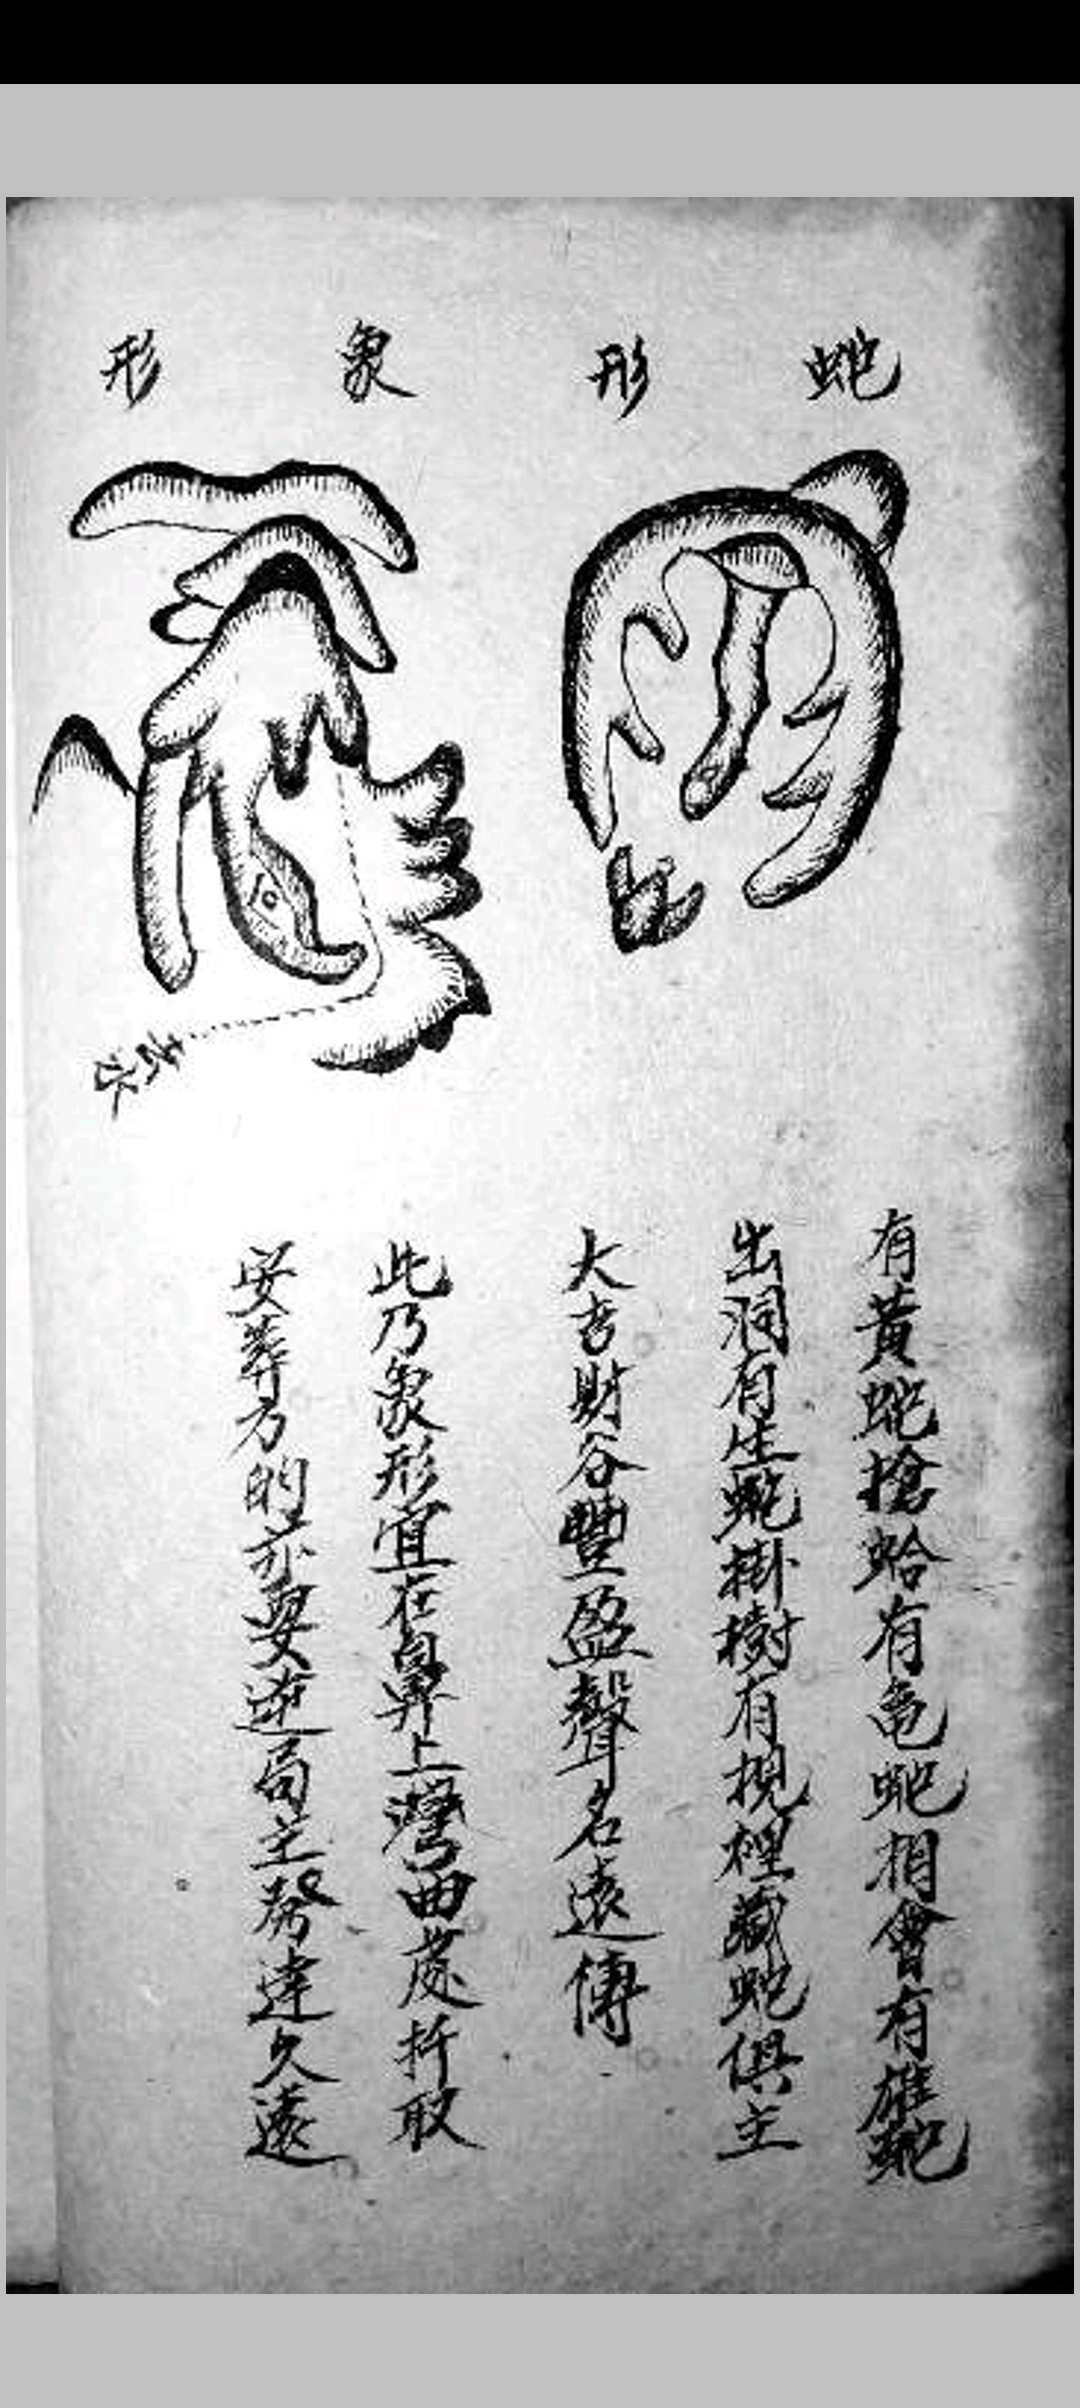 蛇形
象形
去水
有黃蛇搶蛤有龟蛇相會有雄蛇
出洞有生蛇掛樹有梘裡藏蛇俱主
大吉財谷豐盈聲名遠傳
此乃象形宜在鼻上灣曲處折取
安葬方的亦要逆局主發達久遠